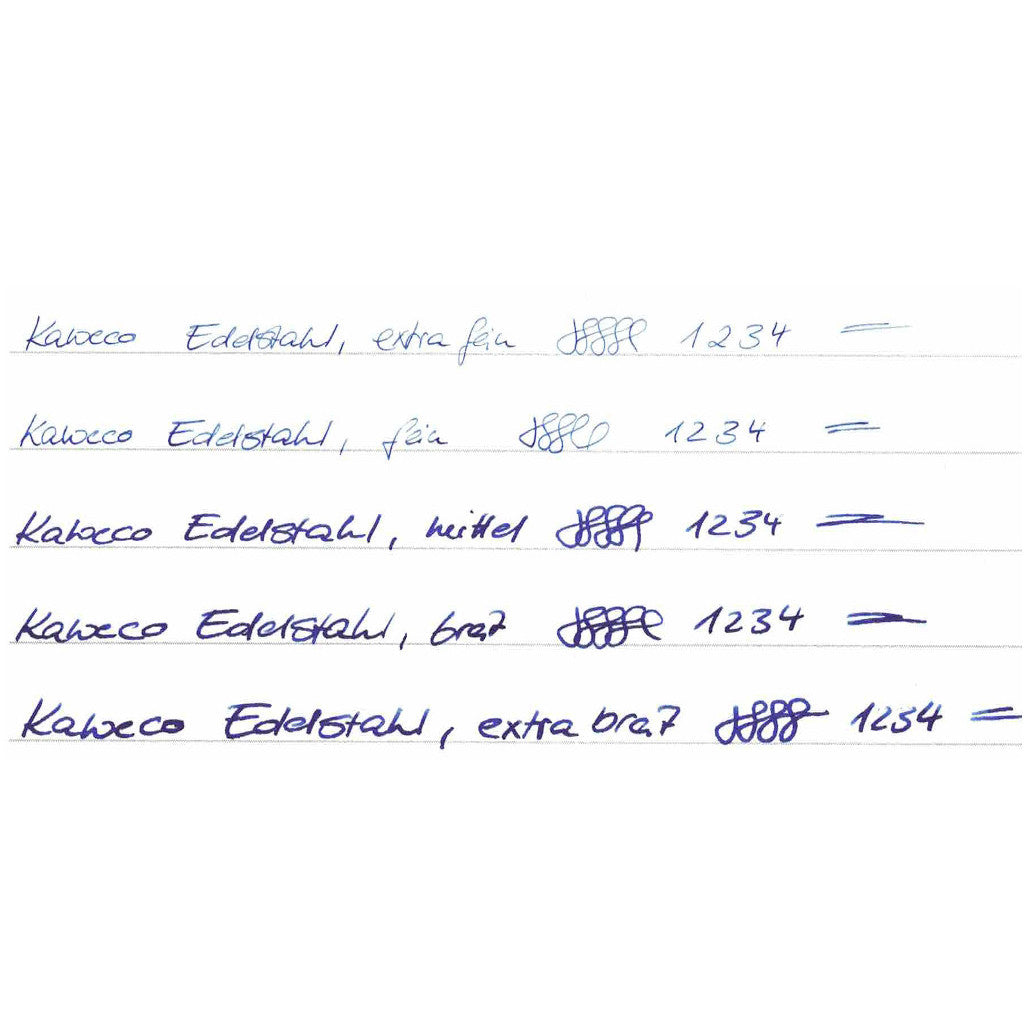 Kaweco Edelstahl, extra fein 1234 =
Kaweco Edelstahl, fein 1234 =
Kaweco Edelstahl, mittel 1234
Kaweco Edelstahl, brat 1234
Kaweco Edelstahl, extra brat 1234 =